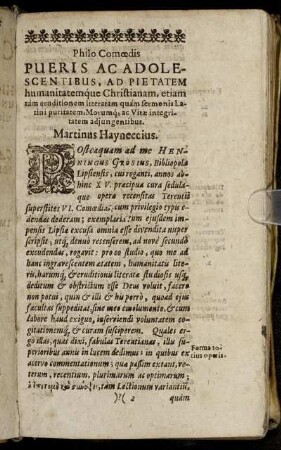 Philo Comœdis
PUERIS AC ADOLE-
SCENTIBUS, AD PIETATEM
humanitatemque Christianam, etiam
tàm eruditionem literatam quàm sermonis La-
tini puritatem, Morumq́; ac Vitæ integri-
tatem adjungentibus.
Martinus Hayneccius.
POsteaquam ad me HEN-
NINGUS GROSIUS, Bibliopola
Lipsensis, cui roganti, annos ab-
hinc XV. præcipua cura sedula-
que opera recensitas Terentii
superstites VI. Comœdias, cum privilegio typis e-
dendas dederam; exemplaria tum ejusdem im-
pensis Lipsiæ excusa omnia esse divendita nuper
scripsit: utq́, denuò recenserem, ad novè secundò
excudendas, rogavit: pro eo studio, quo me ad
hanc ingravescentem ætatem, humanitatis lite-
ris, harumq́, & eruditionis literatæ studiosis usq́,
deditum & obstrictum esse Deus voluit, facere
non potui, quin & illi & his porrò, quoad ejus
facultas suppeditat, sine meo emolumento, & cum
labore haud exiguo, inserviendi voluntatem co-
gitationemq́, & curam susciperem. Quales er-
go illas, quas dixi, fabulas Terentianas, illis su-
perioribus annis in lucem dedimus: in quibus ex-
Forma to-
tius operis.
acervo commentationum, quæ passim extant, ve-
terum, recentium, plurimarum ac optimarum,
tam Lectionum variantiũ,
)?( 2 quàm